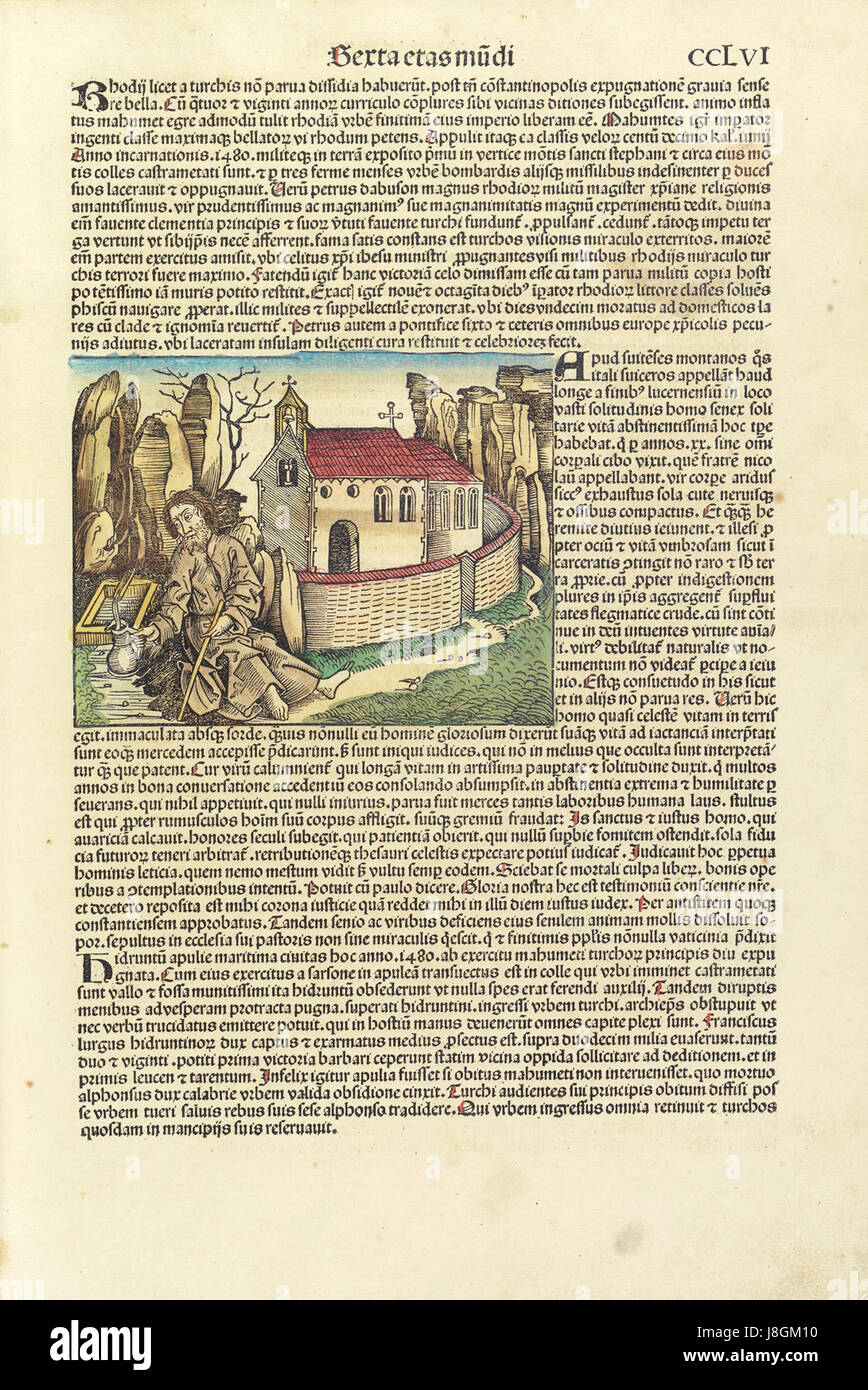 Sexta etas mũdi
CCLVI
Rhodij licet a turchis nõ parua dissidia habuerũt. post tñ cõstantinopolis expugnationẽ grauia sense
re bella. Cũ q̃tuor ⁊ viginti annoꝝ curriculo cõplures sibi vicinas ditiones subegissent. animo infla
tus mahumet egre admodũ tulit rhodiã vrbẽ finitimã eius imperio liberam eẽ. Mahumtes igit̃ imꝑator
ingenti classe maximaqꝫ bellatoꝝ vi rhodum petens. Appulit itaqꝫ ea classis veloꝝ centũ decimo kal. iunij
Anno incarnationis. 1480. militeqꝫ in terrã exposito p̃mũ in vertice mõtis sancti stephani ⁊ circa eius mõ
tis colles castrametati sunt. ⁊ ꝑ tres ferme menses vrbẽ bombardis alijsqꝫ missilibus indesinenter ꝑ duces
suos lacerauit ⁊ oppugnauit. Uerũ petrus dabuson magnus rhodioꝝ militũ magister xp̃iane religionis
amantissimus. vir prudentissimus ac magnanimꝰ sue magnanimitatis magnũ experimentũ dedit. diuina
em̃ fauente clementia principis ⁊ suoꝝ v̓tuti fauente turchi fundunt̃. ꝓpulsant̃. cedunt̃. tãtoqꝫ impetu ter
ga vertunt vt sibijp̃is necẽ afferrent. fama satis constans est turchos visionis miraculo exterritos. maiorẽ
em̃ partem exercitus amisit. vbi celitus xp̃i ihesu ministri ꝓpugnantes visi militibus rhodijs miraculo tur
chis terrori fuere maximo. Fatendũ igit̃ hanc victoriã celo dimissam esse cũ tam parua militũ copia hosti
potẽtissimo iam muris potito restitit. Exact̃ igit̃ nouẽ ⁊ octagĩta diebꝰ im̃ꝑator rhodioꝝ littore classes soluẽs
phiscũ nauigare ꝓperat. illic milites ⁊ suppellectilẽ exonerat. vbi dies vndecim moratus ad domesticos la
res cũ clade ⁊ ignomĩa reuertit̃. Petrus autem a pontifice sixto ⁊ ceteris omnibus europe xp̃icolis pecu
nijs adiutus. vbi laceratam insulam diligenti cura restituit ⁊ celebriorẽ fecit.
Apud suitẽses montanos q̃s
itali suiceros appellãt haud
longe a finibꝰ lucernensiũ in loco
vasti solitudinis homo senex soli
tarie vitã abstinentissimã hoc tp̃e
habebat. q̃ ꝑ annos. xx. sine om̃i
corꝑali cibo vixit. quẽ fratrẽ nico
laũ appellabant. vir corꝑe aridus
siccꝰ exhaustus sola cute neruisqꝫ
⁊ ossibus compactus. Et q̃qꝫ he
remite diutius ieiunent. ⁊ illesi ꝓ
pter ociũ ⁊ vitã vmbrosam sicut ĩ
carceratis ↄtingit nõ raro ⁊ sb̓ ter
ra ꝓprie. cũ ꝓpter indigestionem
plures in ip̃is aggregent̃ suꝑflui
tates flegmatice crude. cũ sint cõti
nue in deũ intuentes virtute aĩa/
li. virtꝰ debilitat̃ naturalis vt no-
cumentum nõ videat̃ ꝑcipe a ieiu
nio. Estqꝫ consuetudo in his sicut
et in alijs nõ parua res. Uerũ hic
homo quasi celestẽ vitam in terris
egit. immaculata absqꝫ sorde. q̃uis nõnulli eũ hominẽ gloriosum dixerũt suãqꝫ vitã ad iactanciã interp̃tati
sunt eoqꝫ mercedem accepisse p̃dicarũt. s̃ sunt iniqui iudices. qui nõ in melius que occulta sunt interpretã-
tur q̃qꝫ que patent. Cur virũ calumnient̃ qui longã vitam in artissima pauꝑtate ⁊ solitudine duxit. q̃ multos
annos in bona conuersatione accedentiũ eos consolando absumpsit. in abstinentia extrema ⁊ humilitate ꝑ
seuerans. qui nihil appetiuit. qui nulli iniurius. parua fuit merces tantis laboribus humana laus. stultus
est qui ꝓpter rumusculos hoĩm suũ corpus affligit. suũqꝫ gremiũ fraudat: Is sanctus ⁊ iustus homo. qui
auariciã calcauit. honores seculi subegit. qui patientiã obierit. qui nullũ suꝑbie fomitem ostendit. sola fidu
cia futuroꝝ teneri arbitrat̃. retributionẽqꝫ thesauri celestis expectare potius iudicat̃. Iudicauit hoc ꝑpetua
hominis leticia. quem nemo mestum vidit s̃ vultu semꝑ eodem. Sciebat se mortali culpa libeꝝ. bonis ope
ribus a ↄtemplationibus intentũ. Potuit cũ paulo dicere. Gloria nostra hec est testimoniũ conscientie nr̃e.
et decetero reposita est mihi corona iusticie quã reddet mihi in illũ diem iustus iudex. Per antistitem quoqꝫ
constantiensem approbatus. Tandem senio ac viribus deficiens eius senilem animam mollis dissoluit so
por. sepultus in ecclesia sui pastoris non sine miraculis q̃escit. q̃ ⁊ finitimis pp̃lis nõnulla vaticinia p̃dixit
Hidruntũ apulie maritima ciuitas hoc anno. 1480. ab exercitu mahumeti turchoꝝ principis diu expu
gnata. Cum eius exercitus a sarsone in apuleã transuectus est in colle qui vrbi imminet castrametati
sunt vallo ⁊ fossa munitissimi ita hidruntũ obsederunt vt nulla spes erat ferendi auxilij. Tandem diruptis
menibus aduesperam protracta pugna. superati hidruntini. ingressi vrbem turchi. archiep̃s obstupuit vt
nec verbũ trucidatus emittere potuit. qui in hostiũ manus deuenerũt omnes capite plexi sunt. Franciscus
lurgus hidruntinoꝝ dux captus ⁊ exarmatus medius ꝓsectus est. supra duodecim milia euaserunt. tantũ
duo ⁊ viginti. potiti prima victoria barbari ceperunt statim vicina oppida sollicitare ad deditionem. et in
primis leucen ⁊ tarentum. Infelix igitur apulia fuisset si obitus mahumeti non interuenisset. quo mortuo
alphonsus dux calabrie vrbem valida obsidione cinxit. Turchi audientes sui principis obitum diffisi pos
se vrbem tueri saluis rebus suis sese alphonso tradidere. Qui vrbem ingressus omnia retinuit ⁊ turchos
quosdam in mancipijs suis reseruauit.
alamy
Image ID: J8GM10
www.alamy.com